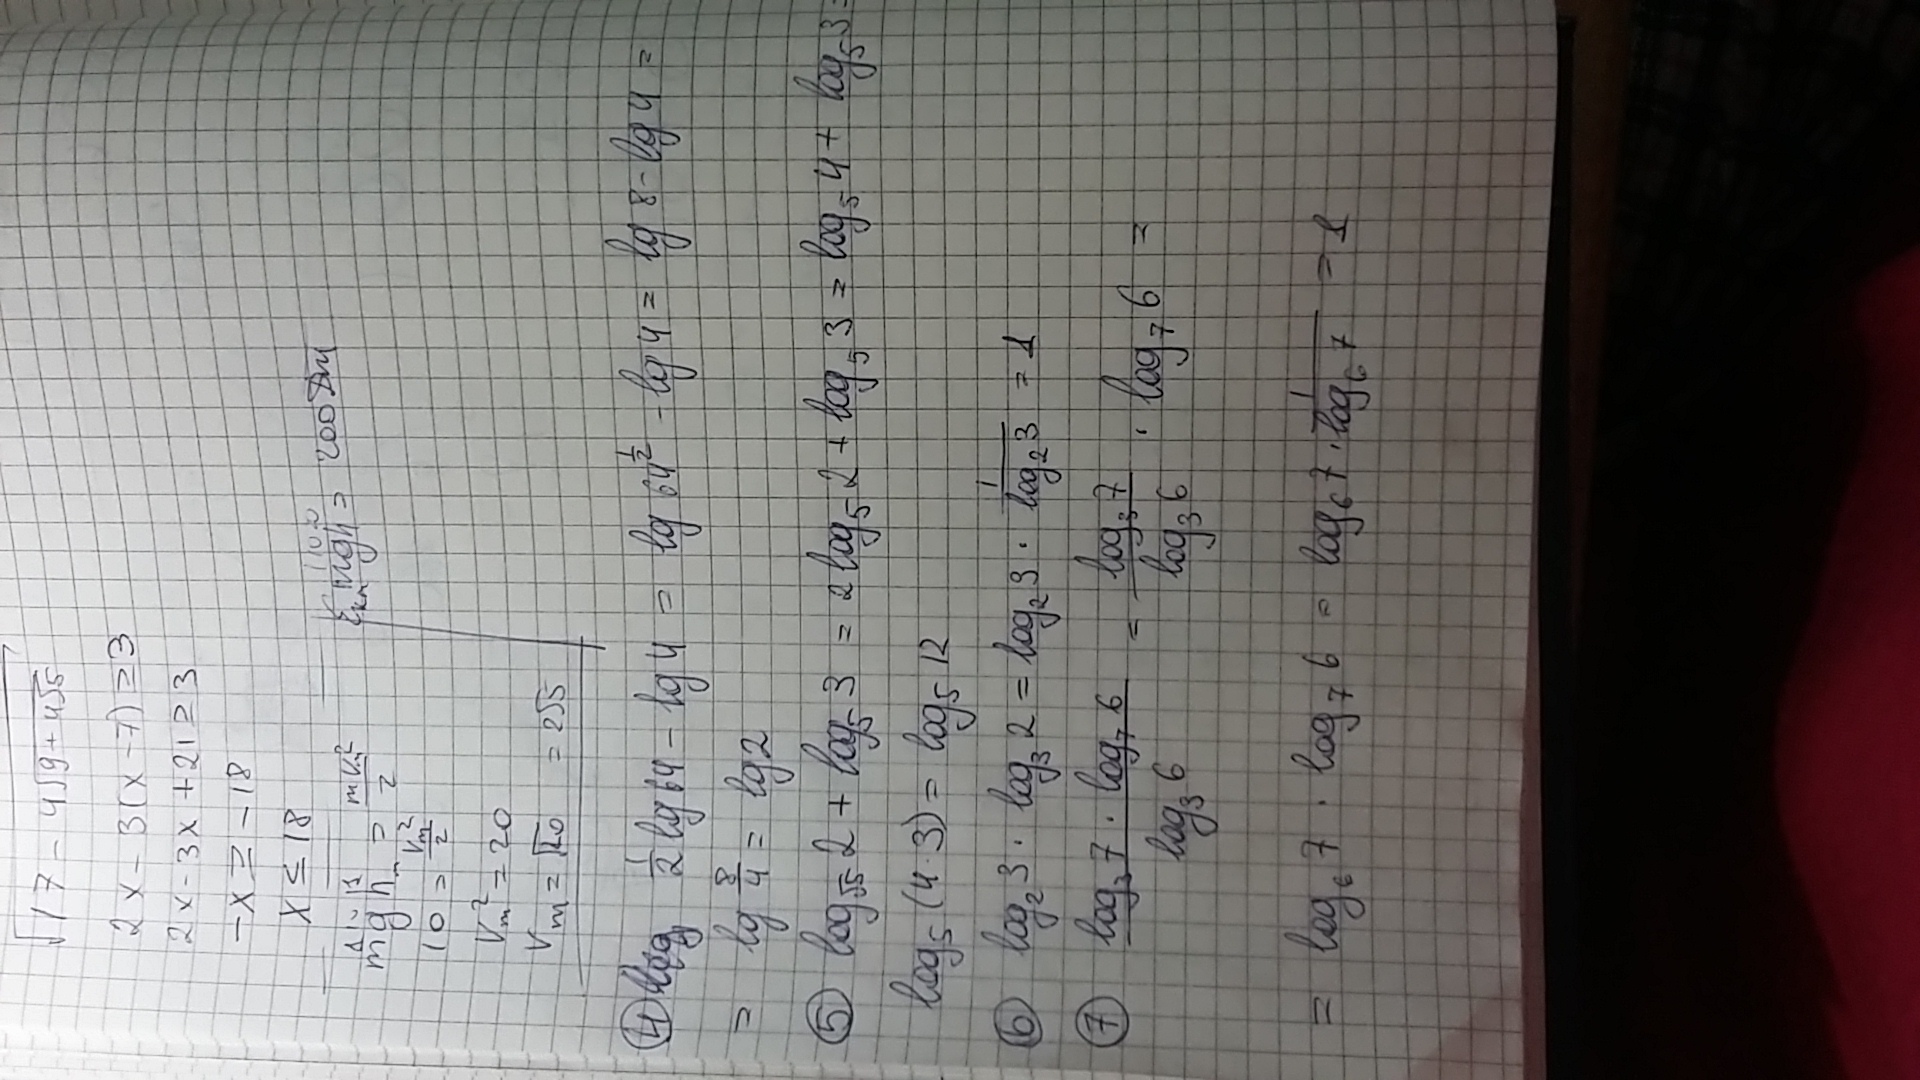 √17 - 4√9 + 4√5
2x - 3(x - 7) ≥ 3
2x - 3x + 21 ≥ 3
-x ≥ -18
x ≤ 18
mgh = mVm²/2
10 = Vm²/2
Vm² = 20
Vm = √20 = 2√5
mgh = 200 Дж
④ 1/2 lg 64 - lg 4 = lg 64^(1/2) - lg 4 = lg 8 - lg 4 =
= lg 8/4 = lg 2
⑤ log_√5 2 + log_5 3 = 2 log_5 2 + log_5 3 = log_5 4 + log_5 3 =
log_5 (4 · 3) = log_5 12
⑥ log_2 3 · log_3 2 = log_2 3 · 1/log_2 3 = 1
⑦ (log_3 7 · log_7 6)/log_3 6 = log_3 7/log_3 6 · log_7 6 =
= log_6 7 · log_7 6 = log_6 7 · 1/log_6 7 = 1